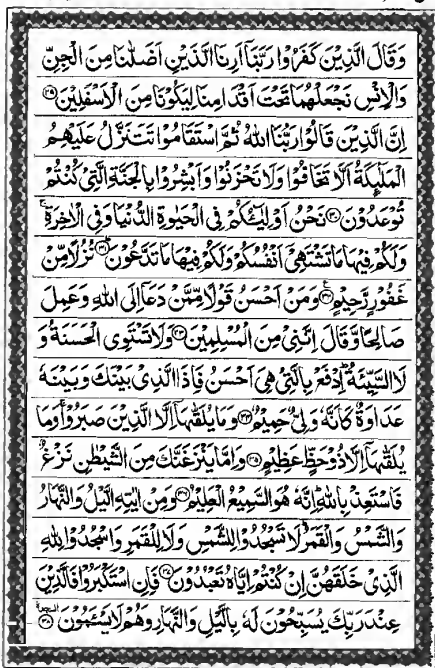 وَقَالَ الَّذِيْنَ كَفَرُوْا رَبَّنَآ اَرِنَا الَّذَيْنِ اَضَلّٰنَا مِنَ الْجِنِّ
وَالْاِنْسِ نَجْعَلْهُمَا تَحْتَ اَقْدَامِنَا لِيَكُوْنَا مِنَ الْاَسْفَلِيْنَ ﴿۲۹﴾
اِنَّ الَّذِيْنَ قَالُوْا رَبُّنَا اللّٰهُ ثُمَّ اسْتَقَامُوْا تَتَنَزَّلُ عَلَيْهِمُ
الْمَلٰٓئِكَةُ اَلَّا تَخَافُوْا وَلَا تَحْزَنُوْا وَاَبْشِرُوْا بِالْجَنَّةِ الَّتِيْ كُنْتُمْ
تُوْعَدُوْنَ ﴿۳۰﴾ نَحْنُ اَوْلِيٰٓؤُكُمْ فِي الْحَيٰوةِ الدُّنْيَا وَفِي الْاٰخِرَةِ ۚ
وَلَكُمْ فِيْهَا مَا تَشْتَهِيْٓ اَنْفُسُكُمْ وَلَكُمْ فِيْهَا مَا تَدَّعُوْنَ ﴿۳۱﴾ نُزُلًا مِّنْ
غَفُوْرٍ رَّحِيْمٍ ﴿۳۲﴾ وَمَنْ اَحْسَنُ قَوْلًا مِّمَّنْ دَعَآ اِلَى اللّٰهِ وَعَمِلَ
صَالِحًا وَّقَالَ اِنَّنِيْ مِنَ الْمُسْلِمِيْنَ ﴿۳۳﴾ وَلَا تَسْتَوِي الْحَسَنَةُ وَ
لَا السَّيِّئَةُ ؕ اِدْفَعْ بِالَّتِيْ هِيَ اَحْسَنُ فَاِذَا الَّذِيْ بَيْنَكَ وَبَيْنَهٗ
عَدَاوَةٌ كَاَنَّهٗ وَلِيٌّ حَمِيْمٌ ﴿۳۴﴾ وَمَا يُلَقّٰىهَآ اِلَّا الَّذِيْنَ صَبَرُوْا ۚ وَمَا
يُلَقّٰىهَآ اِلَّا ذُوْ حَظٍّ عَظِيْمٍ ﴿۳۵﴾ وَاِمَّا يَنْزَغَنَّكَ مِنَ الشَّيْطٰنِ نَزْغٌ
فَاسْتَعِذْ بِاللّٰهِ ؕ اِنَّهٗ هُوَ السَّمِيْعُ الْعَلِيْمُ ﴿۳۶﴾ وَمِنْ اٰيٰتِهِ الَّيْلُ وَالنَّهَارُ
وَالشَّمْسُ وَالْقَمَرُ ؕ لَا تَسْجُدُوْا لِلشَّمْسِ وَلَا لِلْقَمَرِ وَاسْجُدُوْا لِلّٰهِ
الَّذِيْ خَلَقَهُنَّ اِنْ كُنْتُمْ اِيَّاهُ تَعْبُدُوْنَ ﴿۳۷﴾ فَاِنِ اسْتَكْبَرُوْا فَالَّذِيْنَ
عِنْدَ رَبِّكَ يُسَبِّحُوْنَ لَهٗ بِالَّيْلِ وَالنَّهَارِ وَهُمْ لَا يَسْئَمُوْنَ ﴿۳۸﴾